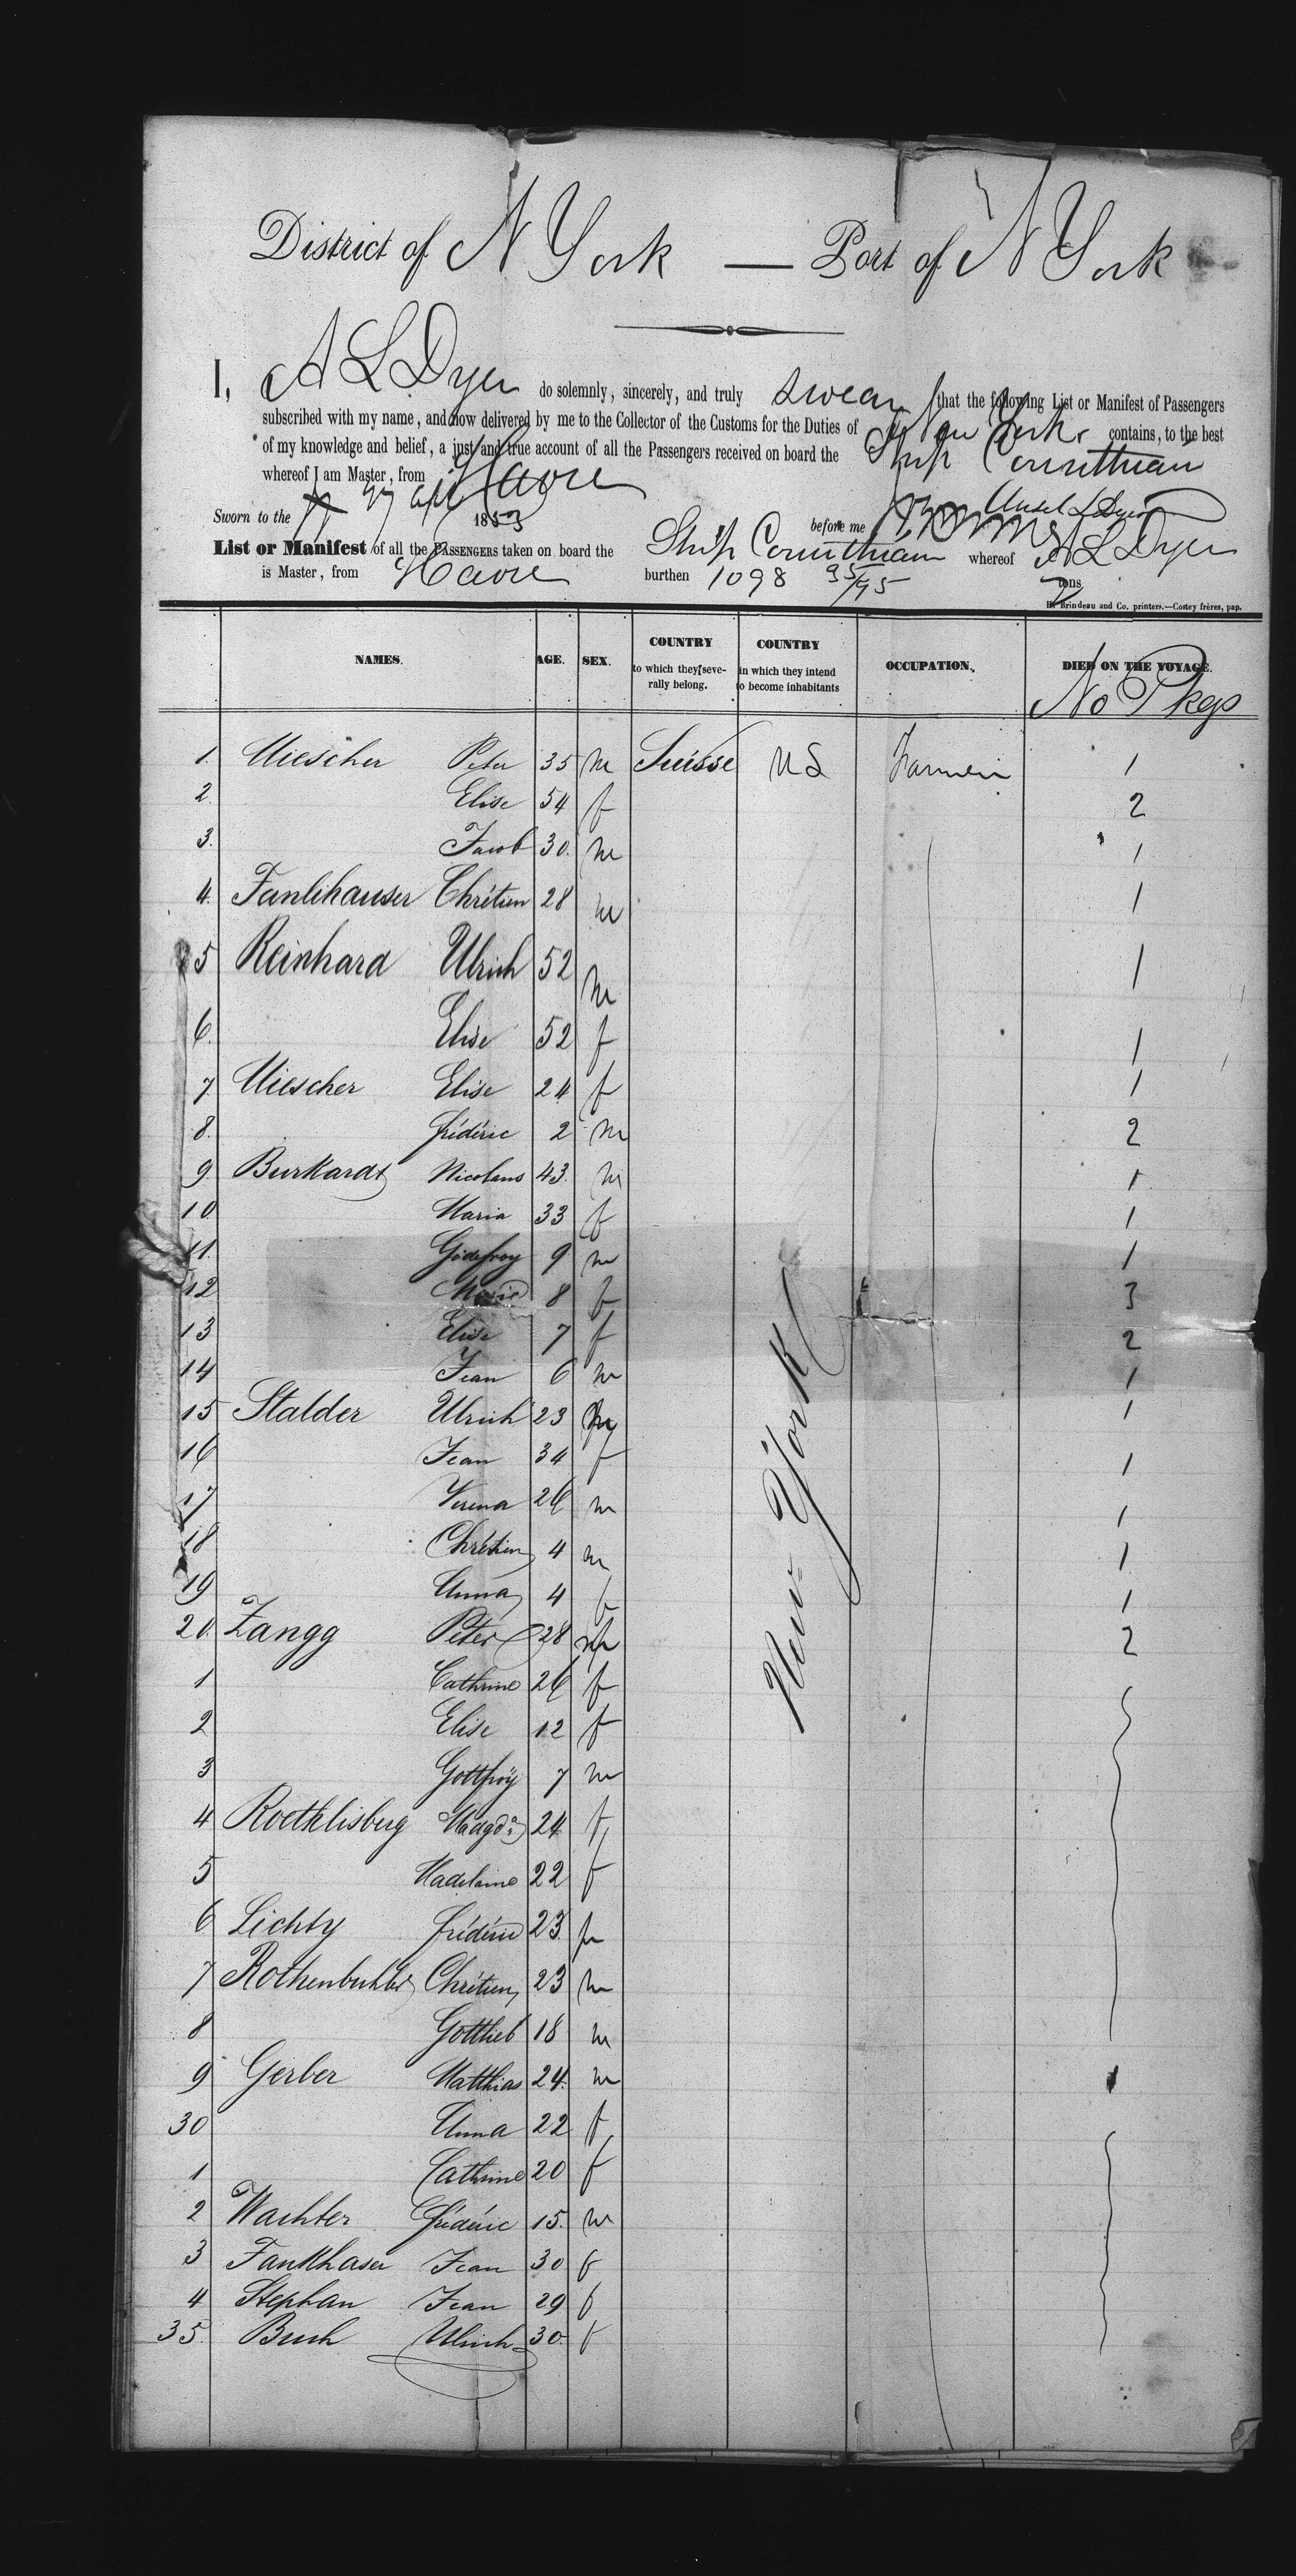 District of N York — Port of N York
I, A L Dyer do solemnly, sincerely, and truly swear that the following List or Manifest of Passengers
subscribed with my name, and now delivered by me to the Collector of the Customs for the Duties of New York contains, to the best
of my knowledge and belief, a just and true account of all the Passengers received on board the Ship Corinthian
whereof I am Master, from Havre
Sworn to the 27 apl 1853 before me
List or Manifest of all the PASSENGERS taken on board the Ship Corinthian whereof A L Dyer
is Master, from Havre burthen 1098 95/95 tons
H. Brindeau and Co. printers.—Costey frères, pap.
NAMES. AGE. SEX. COUNTRY to which they seve-rally belong. COUNTRY in which they intend to become inhabitants OCCUPATION. DIED ON THE VOYAGE.
No Pkgs
1. Miescher Peter 35 m Suisse U S Farmer 1
2. Elise 54 f 2
3. Jacob 30. m 1
4. Fankhauser Chrétien 28 m 1
5 Reinhard Ulrich 52 m 1
6. Elise 52 f 1
7. Miescher Elise 24 f 1
8. frédéric 2 m 2
9. Burkardt Nicolaus 43. m 1
10. Maria 33 f 1
11. Godefroy 9 m 1
12 Marie 8 f 3
13 Elise 7 f 2
14 Jean 6 m 1
15 Stalder Ulrich 23 m 1
16 Jean 34 f 1
17 Verena 26 m 1
18 Chrétien 4 m 1
19 Anna 4 f 1
20. Zangg Peter 28 m 2
1 Cathrine 26 f
2 Elise 12 f
3 Gottfroy 7 m
4 Roethlisberg Magda 24 f
5 Madelaine 22 f
6 Lichty frédéric 23. m
7 Rothenbuhler Chrétien 23 m
8 Gottlieb 18 m
9 Gerber Matthias 24. m 1
30 Anna 22 f
1 Cathrine 20 f
2 Wachter frédéric 15. m
3 Fankhaser Jean 30 f
4 Stephan Jean 29 f
35. Buch Ulrich 30. f
New-York